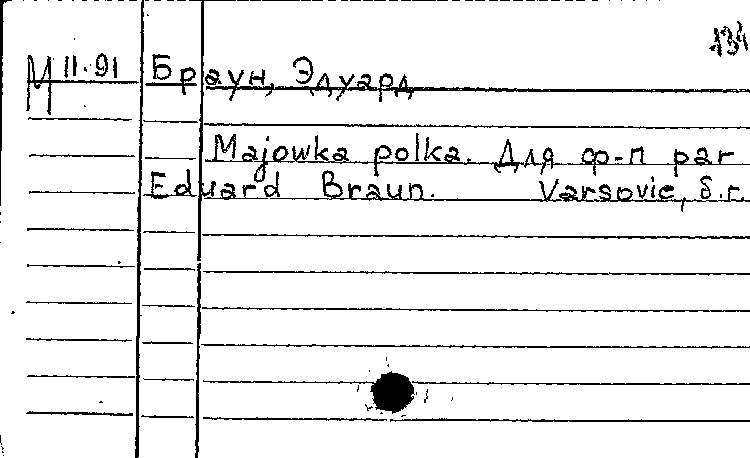 134
М II.91 Браун, Эдуард
Majowka polka. Для ф-п par
Eduard Braun. Varsovie, б.г.